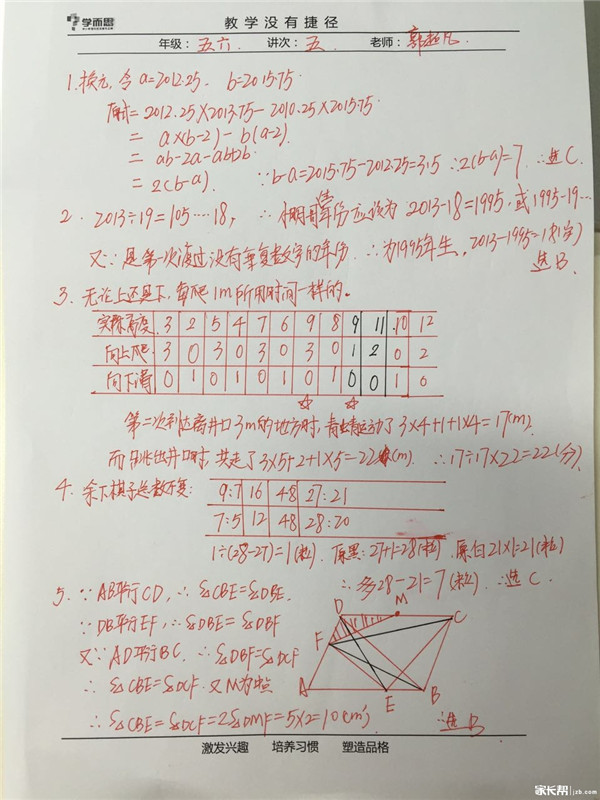 学而思
教学没有捷径
年级：五六 讲次：五 老师：郭超凡
1.换元,令 a=2012.25. b=2015.75
原式=2012.25×2013.75-2010.25×2015.75
= a×(b-2)-b(a-2)
= ab-2a-ab+2b
= 2(b-a). ∵b-a=2015.75-2012.25=3.5 ∴2(b-a)=7. ∴选C.
2. 2013÷19=105……18, ∴ 年份应该为 2013-18=1995, 或1995-19…
又∵是第一次度过没有重复数字的年份. ∴为1995年生, 2013-1995=18(岁)
选B.
3. 无论上还是下,每爬1m所用时间一样的。
实际高度 3 2 5 4 7 6 9 8 9 11 10 12
向上爬 3 0 3 0 3 0 3 0 1 2 0 2
向下滑 0 1 0 1 0 1 0 1 0 0 1 0
第二次到达离井口3m的地方时,青蛙运动了3×4+1+1×4=17(m)
而爬出井口时,共走了3×5+2+1×5=22(m). ∴17÷17×22=22(分)
4. 余下棋子总数不变:
9:7 16 48 27:21
7:5 12 48 28:20
1÷(28-27)=1(粒). 原黑: 27+1=28(粒) 原白21×1=21(粒)
∴多28-21=7(粒). ∴选C.
5. ∵AB平行CD, ∴S△CBE=S△DBE.
∵DB平行EF, ∴S△DBE=S△DBF
又∵AD平行BC, ∴S△DBF=S△DCF
∴ S△CBE=S△DCF. 又M为中点
∴S△CBE=S△DCF=2S△DMF=5×2=10(cm²)
∴选B
D M C
F
A E B
激发兴趣 培养习惯 塑造品格
家长帮 jzb.com